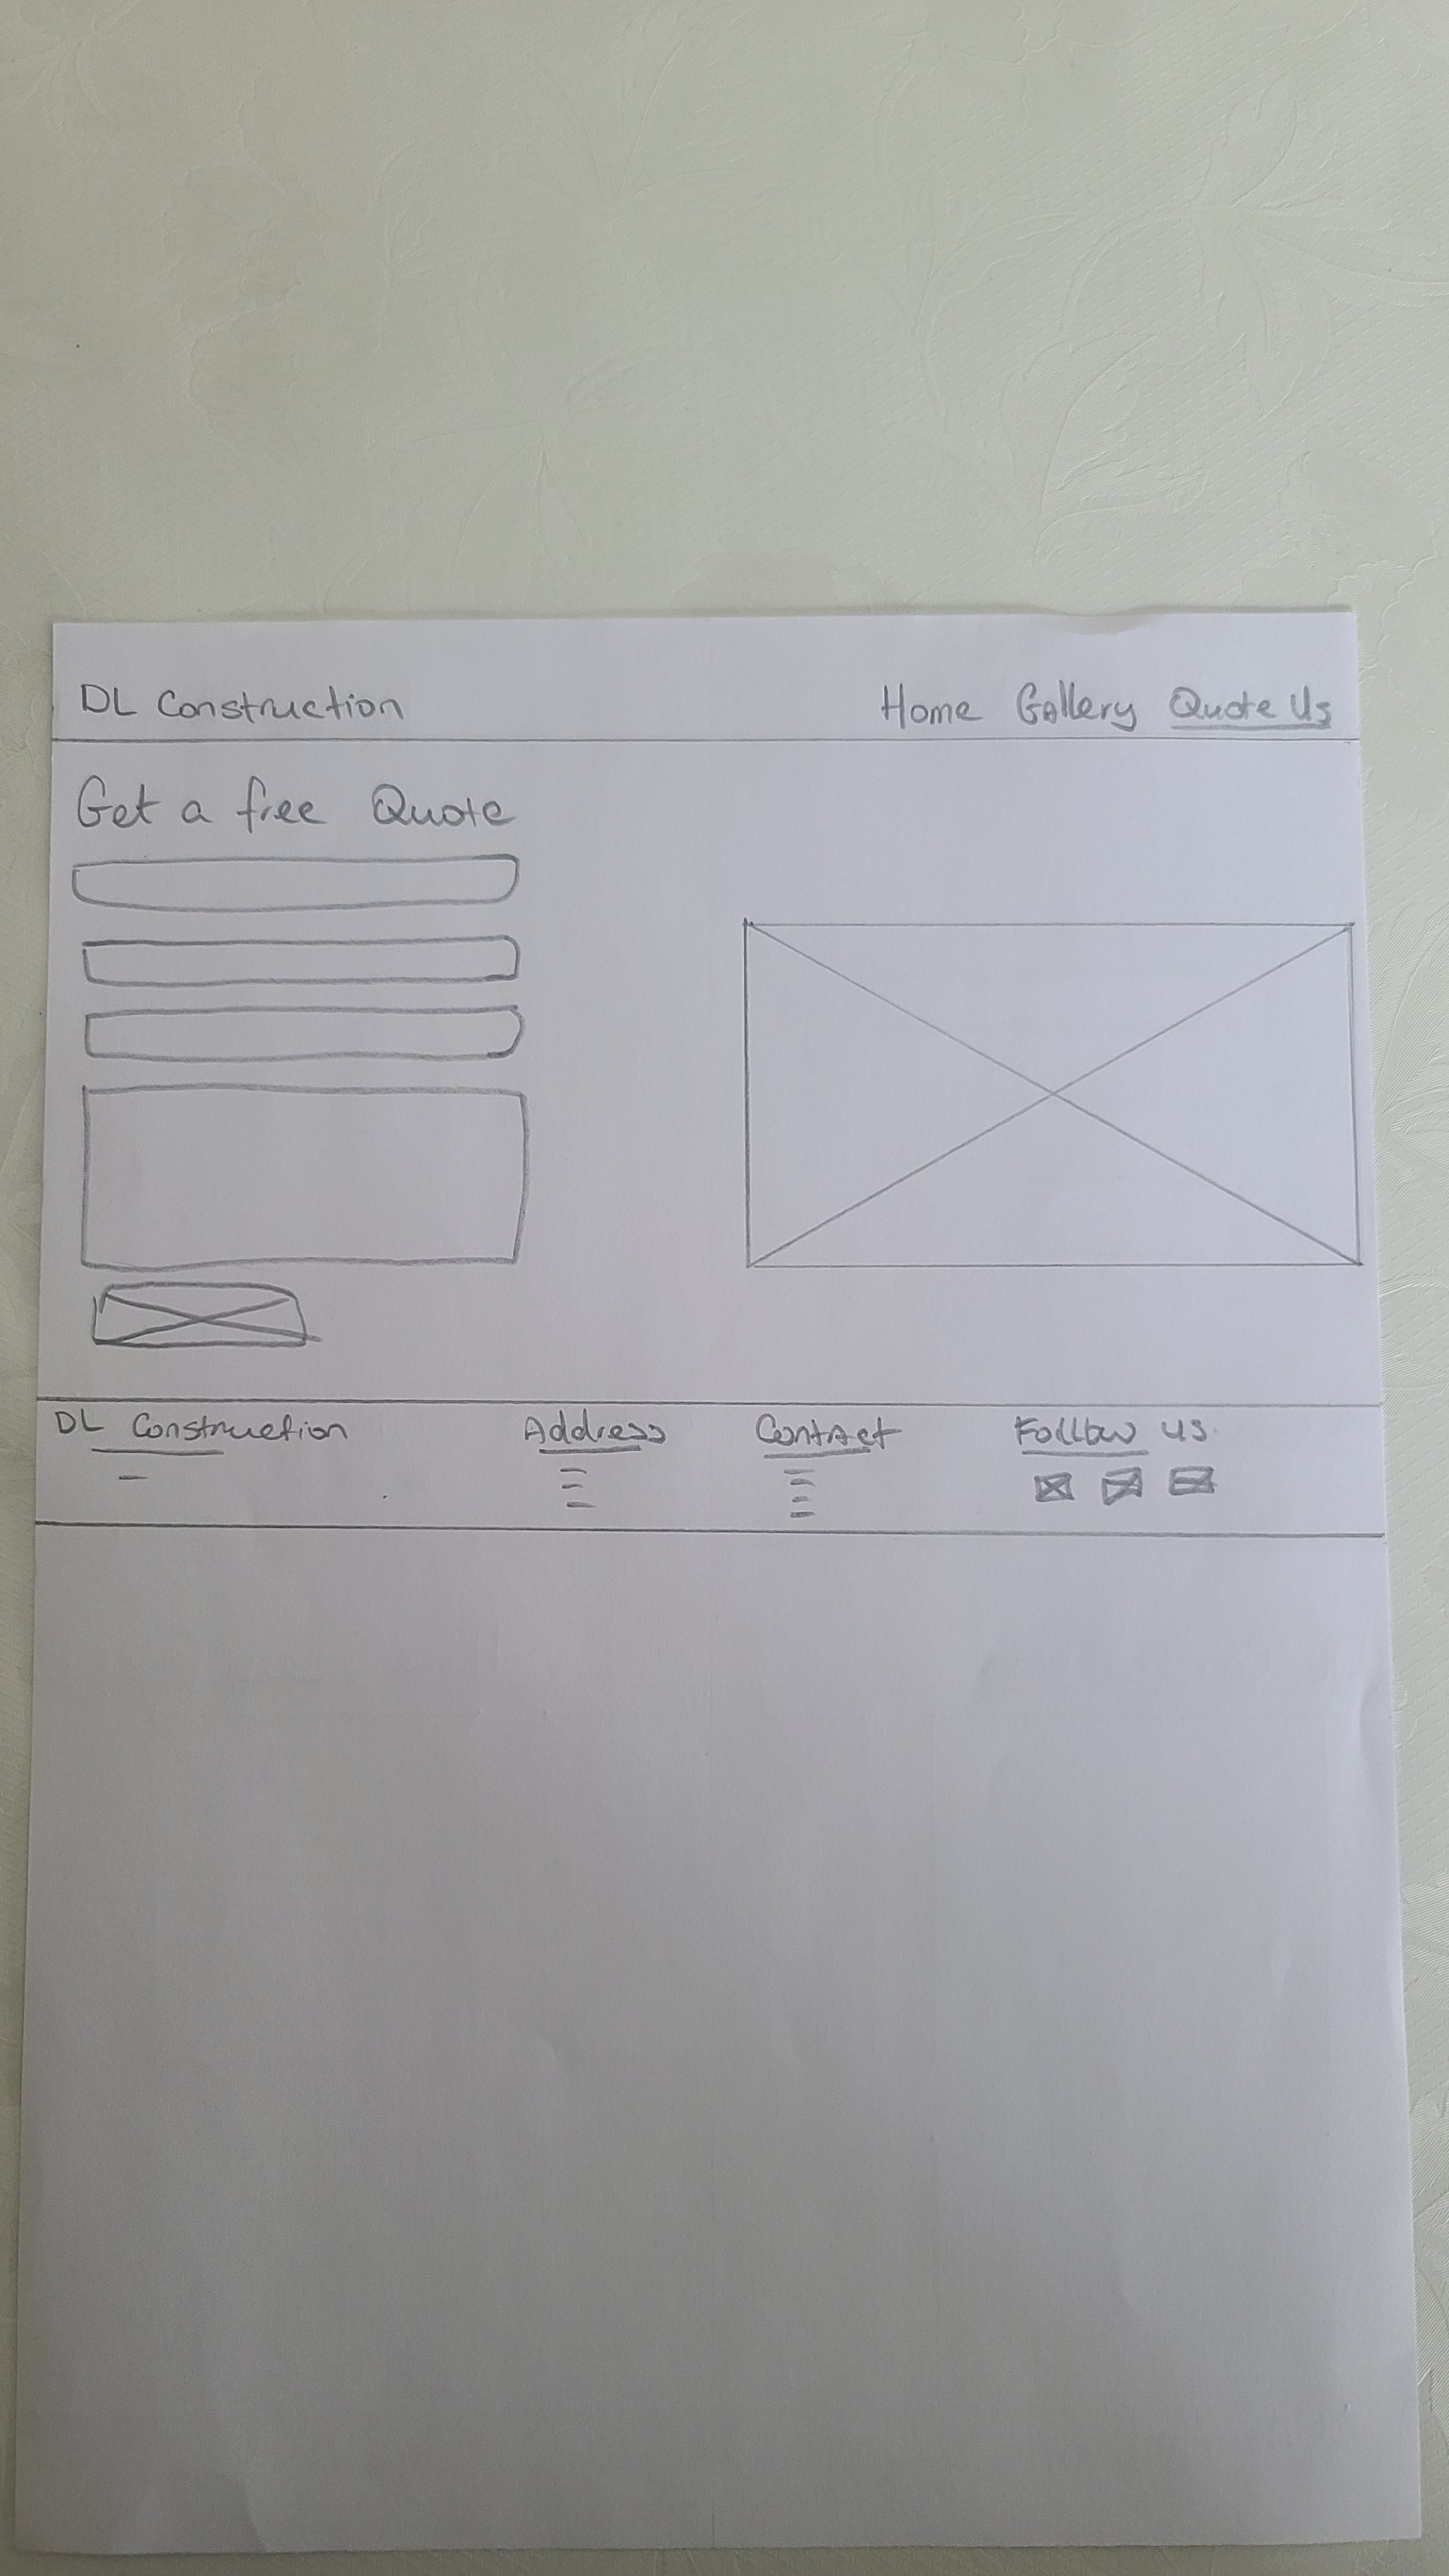 DL Construction Home Gallery Quote Us
Get a free Quote
DL Construction Address Contact Follow us